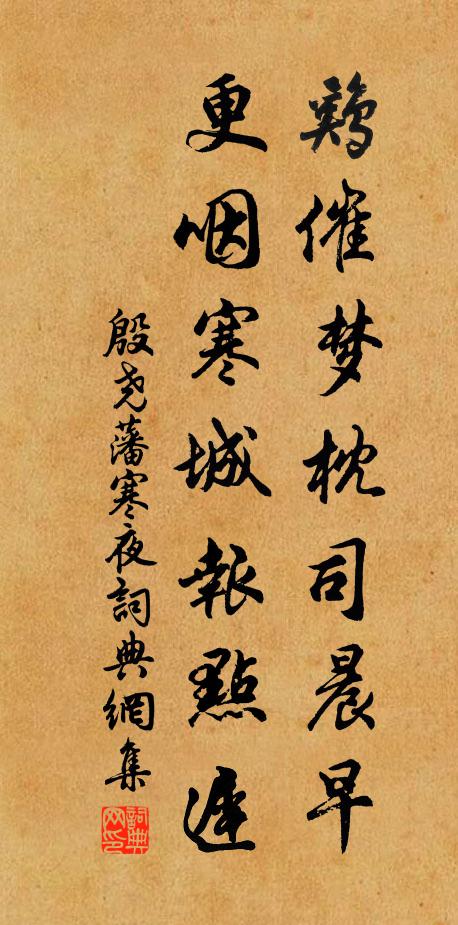 鷄催梦枕司晨早
更咽寒城報點遲
殷尧藩寒夜詞典網集
詞典网印